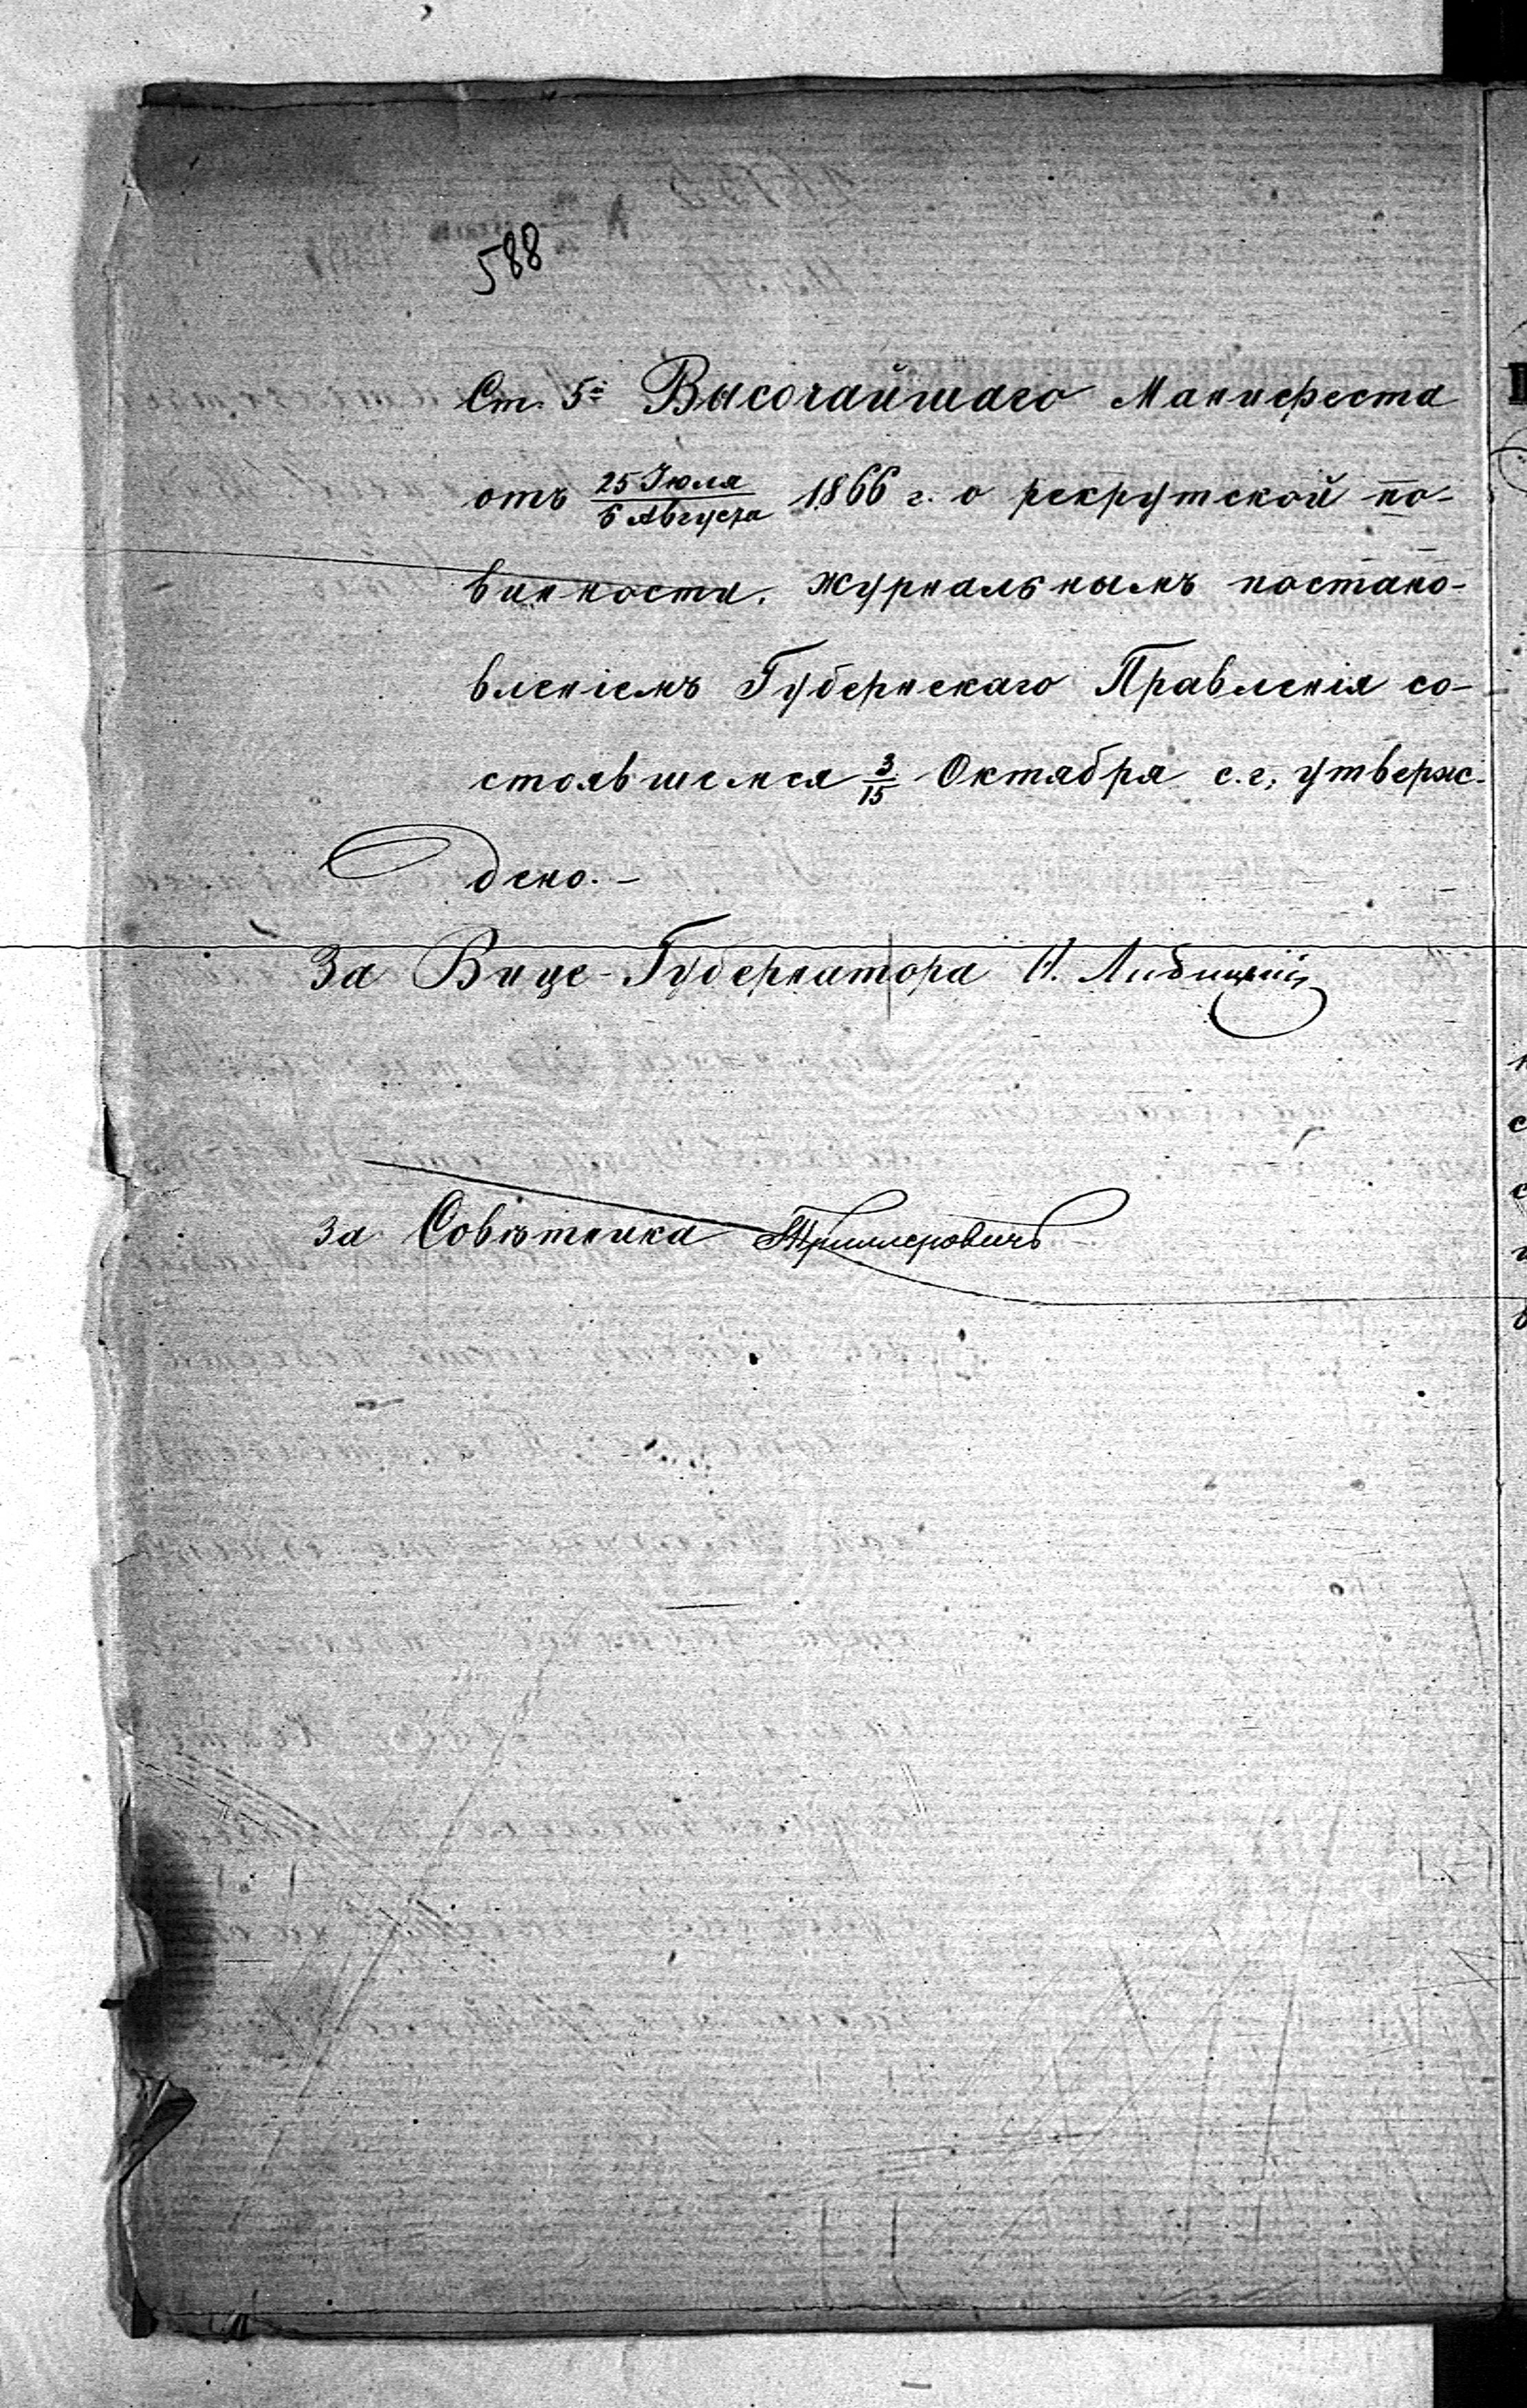 588
Ст. 5й Высочайшаго Манифеста
отъ 25 Іюля / 6 Августа 1866 г. о рекрутской по-
винности, журнальнымъ постано-
вленіемъ Губернскаго Правленія со-
стоявшемся 3/15 Октября с.г, утверж-
дено.-
За Вице-Губернатора Н. Либицкій
За Совѣтника